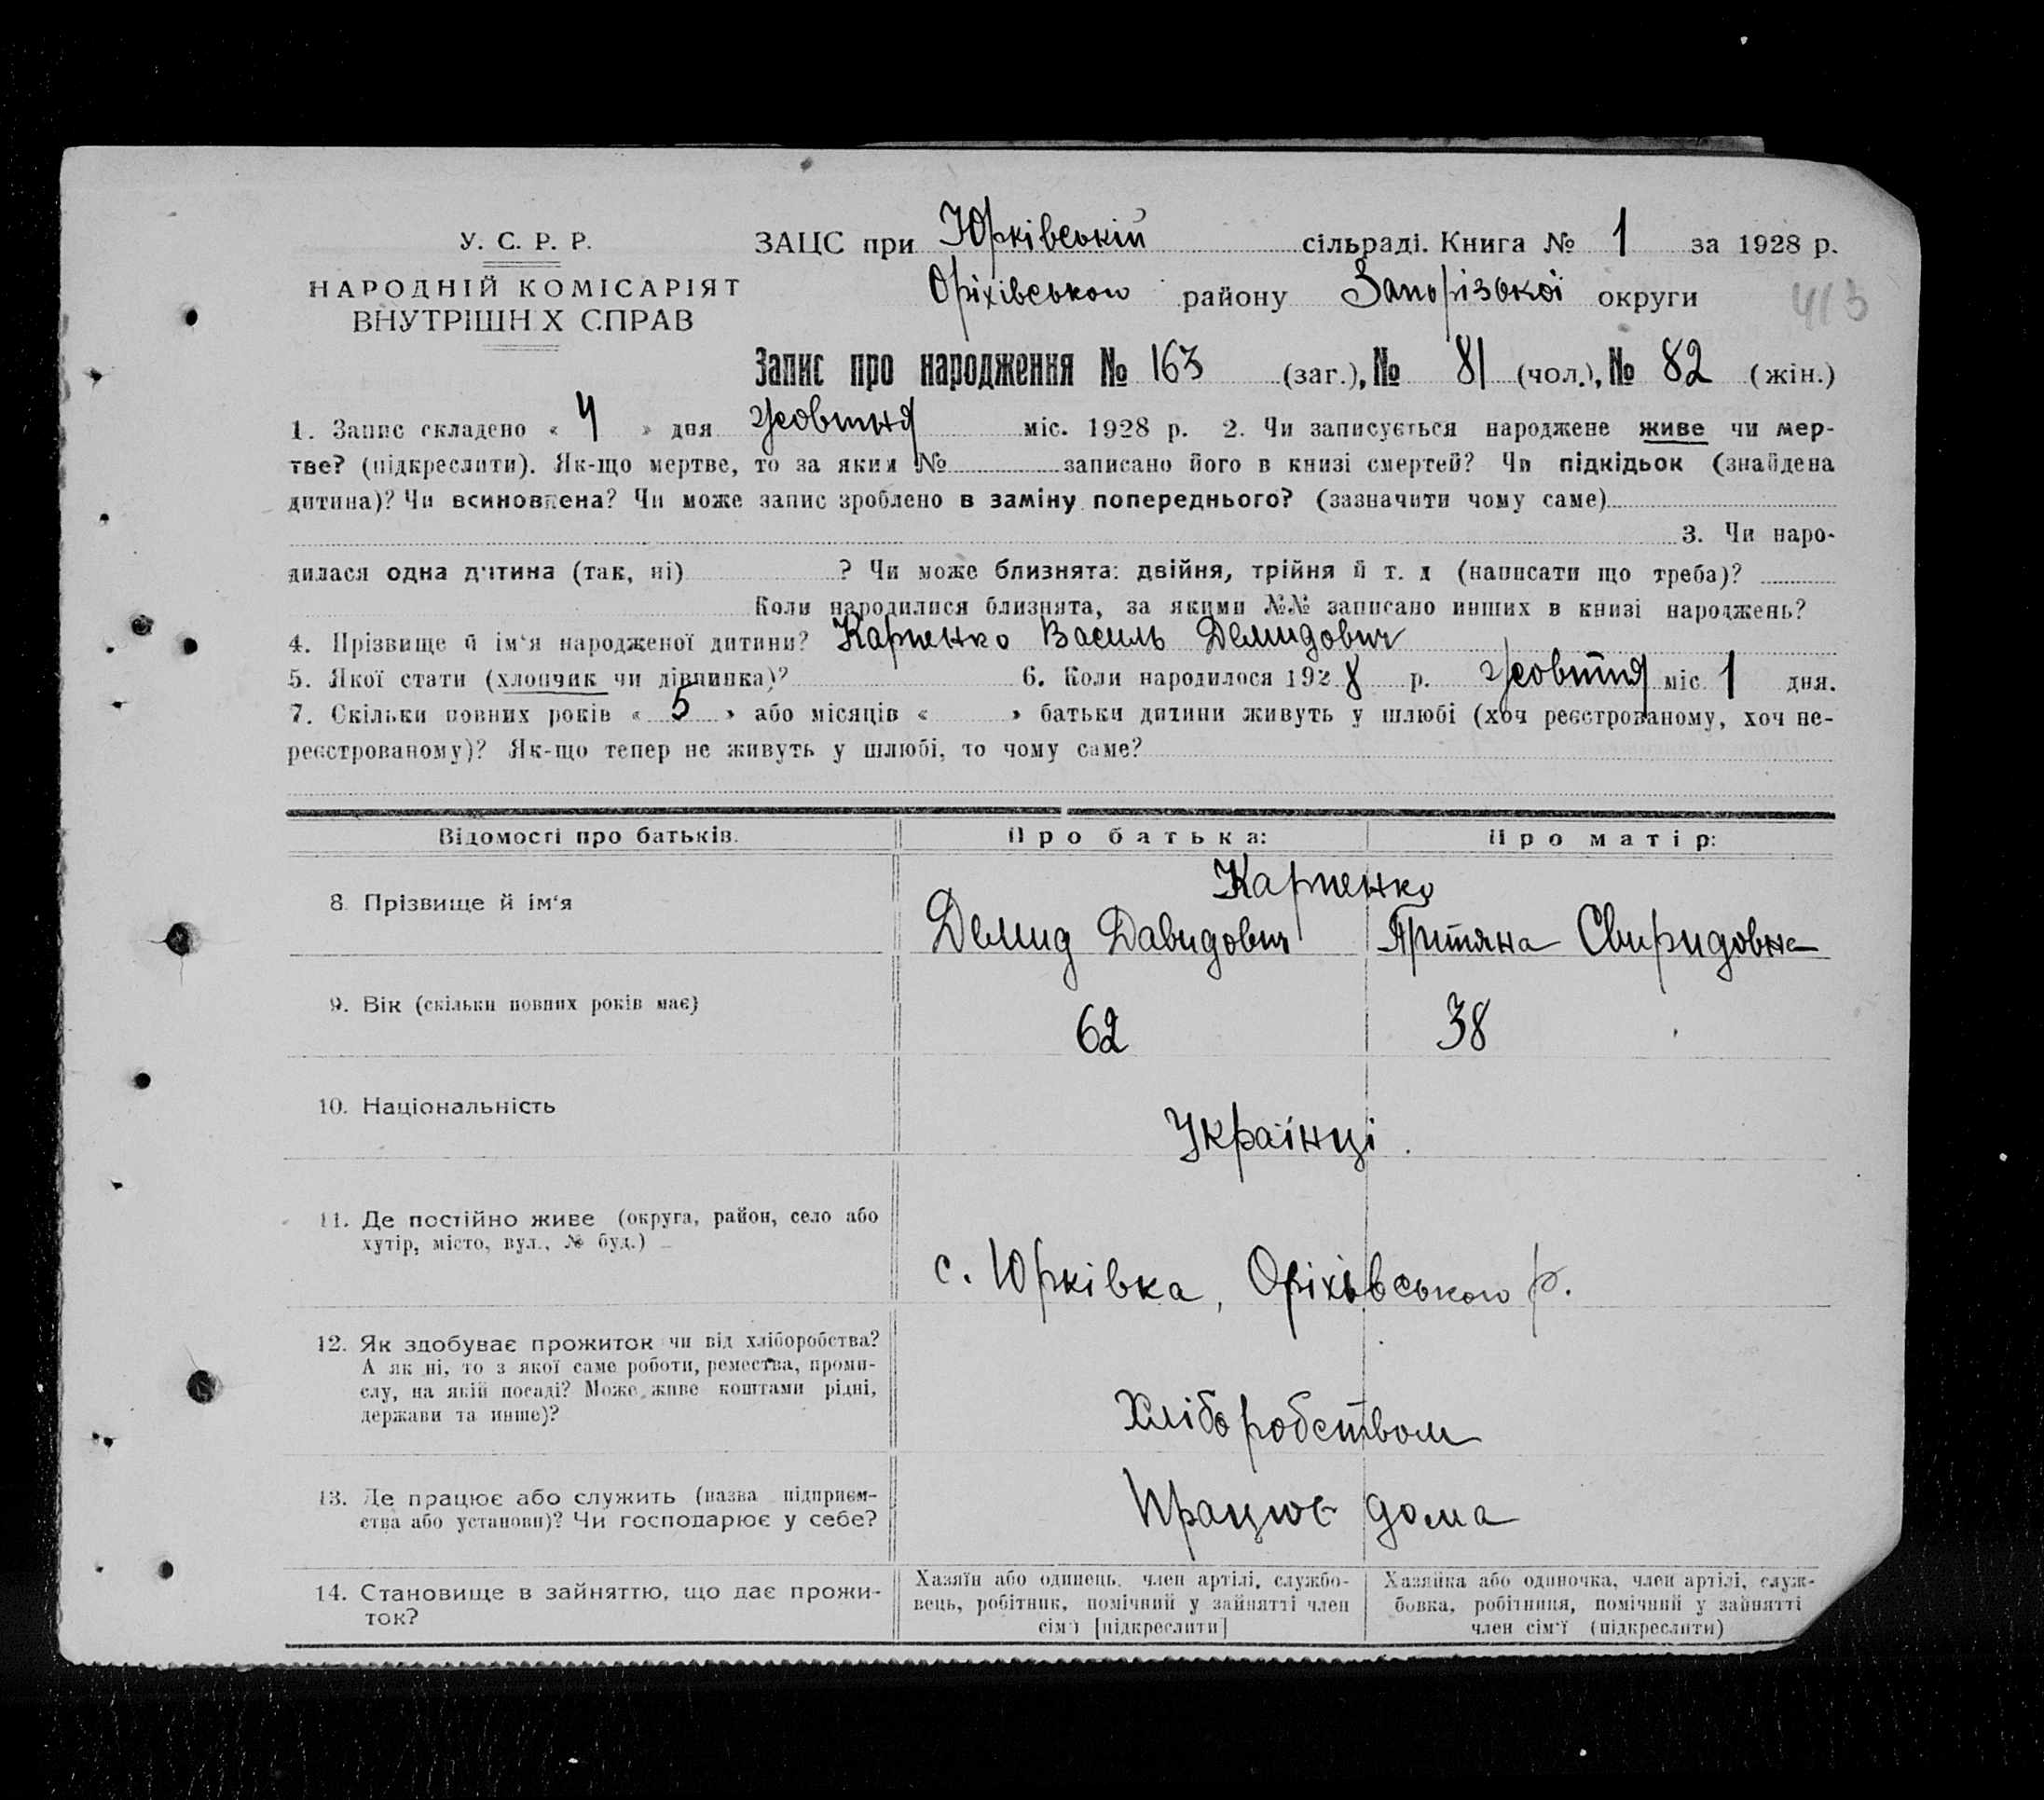 У. С. Р. Р.
НАРОДНІЙ КОМІСАРІЯТ
ВНУТРІШН Х СПРАВ
ЗАЦС при Юрківській сільраді. Книга № 1 за 1928 р.
Оріхівського району Запорізької округи
413
Запис про народження № 163 (заг.), № 81 (чол.), № 82 (жін.)
1. Запис складено « 4 » дня жовтня міс. 1928 р. 2. Чи записується народжене живе чи мер-
тве? (підкреслити). Як-що мертве, то за яким № записано його в книзі смертей? Чи підкідьок (знайдена
дитина)? Чи всиновлена? Чи може запис зроблено в заміну попереднього? (зазначити чому саме)
3. Чи наро-
дилася одна дитина (так, ні) ? Чи може близнята: двійня, трійня й т. д (написати що треба)?
Коли народилися близнята, за якими №№ записано инших в книзі народжень?
4. Прізвище й ім'я народженої дитини? Карпенко Василь Демидович
5. Якої стати (хлопчик чи дівчинка)? 6. Коли народилося 1928 р. жовтня міс. 1 дня.
7. Скільки повних років « 5 » або місяців « » батьки дитини живуть у шлюбі (хоч реєстрованому, хоч не-
реєстрованому)? Як-що тепер не живуть у шлюбі, то чому саме?
Відомості про батьків. Про батька: Про матір:
8. Прізвище й ім'я
Карпенко
Демид Давидович Свиридовна
9. Вік (скільки повних років має)
62 38
10. Національність
Українці.
11. Де постійно живе (округа, район, село або
хутір, місто, вул., № буд.)
с. Юрківка, Оріхівського р.
12. Як здобуває прожиток чи від хліборобства?
А як ні, то з якої саме роботи, ремества, проми-
слу, на якій посаді? Може живе коштами рідні,
держави та инше)?
Хліборобством
13. Де працює або служить (назва підприєм-
ства або установи)? Чи господарює у себе?
Працює дома
14. Становище в зайняттю, що дає прожи-
ток?
Хазяїн або одинець, член артілі, службо-
вець, робітник, помічний у зайнятті член
сім'ї [підкреслити]
Хазяйка або одиночка, член артілі, служ-
бовка, робітниця, помічний у зайнятті
член сім'ї (підкреслити)